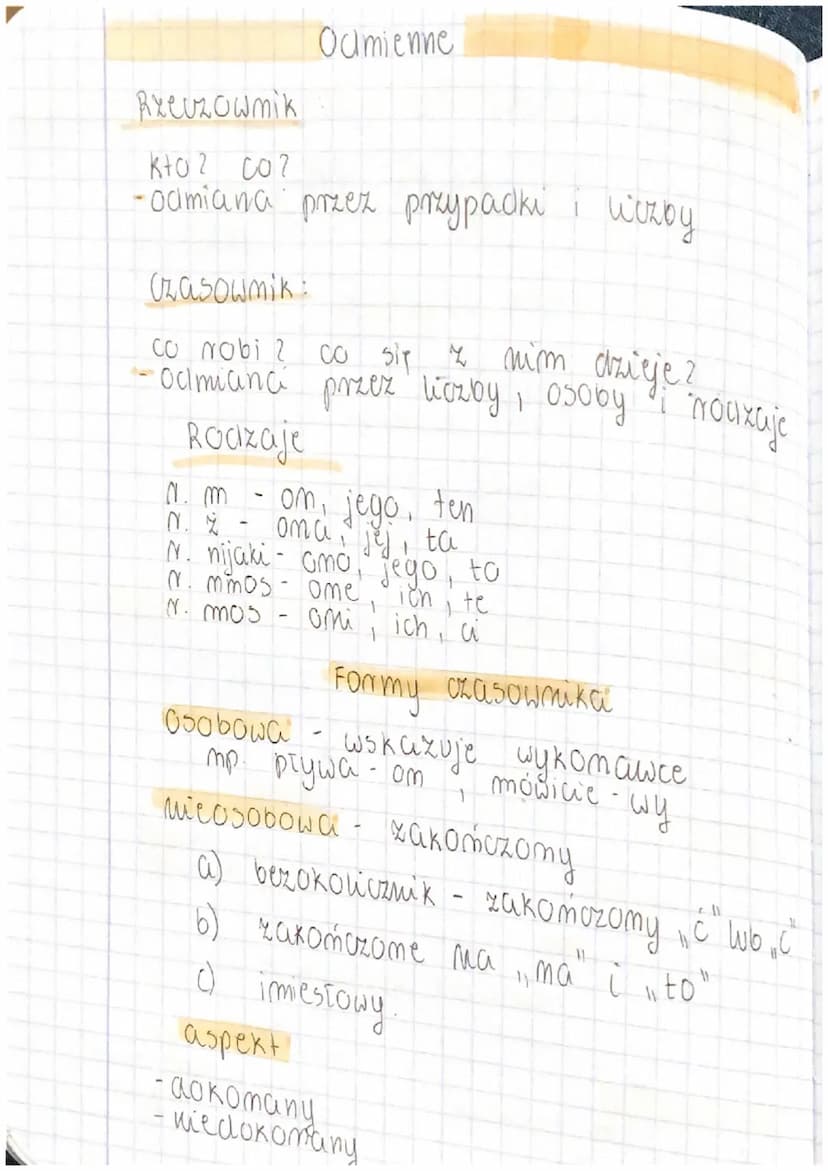 Odmienne
Rzeczownik
Kto? co?
-odmiana przez przypadki i liczby
Czasownik:
co robi? co się z nim dzieje?
-odmiana przez liczby, osoby i rodzaje
Rodzaje
r. m - on, jego, ten
r. ż - ona, jej, ta
r. nijaki - ono, jego, to
r. nmos - one, ich, te
r. mos - oni, ich, ci
Formy czasownika
Osobowa - wskazuje wykonawce
np. pływa - on, mówicie - wy
nieosobowa - zakończony
a) bezokolicznik - zakończony „ć" lub „c"
b) zakończone na „no" i „to"
c) imiesłowy.
aspekt
-dokonany
-niedokonany